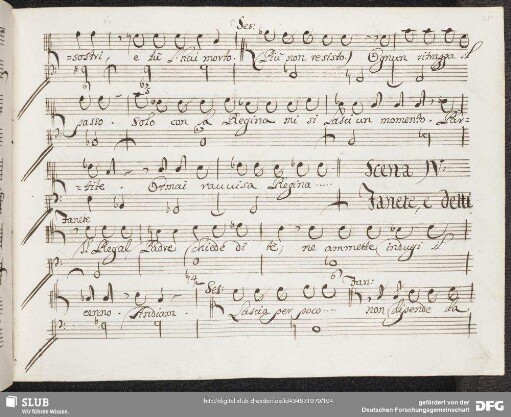 Ses:
=sostri, e tù l'hai morto. (Più non resisto.) Ognun ritragga il
passo. Solo con la Regina mi si lasci un momento. Par=
=tite. Ormai ravvisa Regina.....
Scena IV:
Janete, e detti
Janete
Il Regal Padre chiede di te; ne ammette indugi il
cenno. Andiam.
Ses:
Lascia per poco....
Jan:
non dipende da
SLUB
Wir führen Wissen.
gefördert von der
Deutschen Forschungsgemeinschaft
DFG